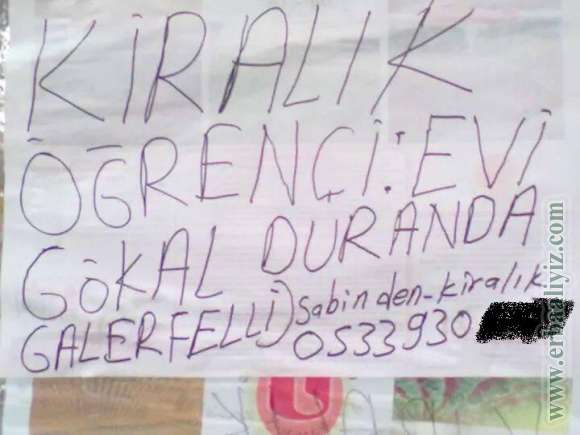 KİRALIK
ÖĞRENÇİ: EVİ
GÖKAL DURANDA
GALERFELLİ) sabinden-kiralık
0533930
www.erbaaliyiz.com